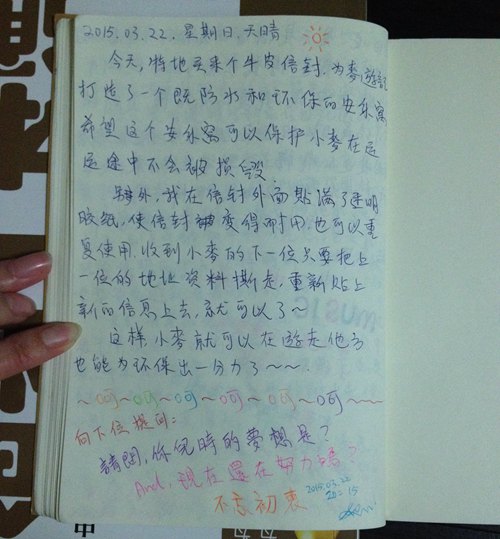 2015.03.22. 星期日. 天晴
今天, 特地买来个牛皮信封, 为麥遊記
打造了一个既防水和环保的安乐窩
希望这个安乐窩可以保护小麥在运
送途中不会被损毁.
另外, 我在信封外面贴满了透明
胶纸, 使信封變得耐用, 也可以重
复使用. 收到小麥的下一位只要把上
一位的地址资料撕走, 重新贴上
新的信息上去, 就可以了~
这样小麥就可以在遊走他方
也能为环保出一分力了~~
~呵~呵~呵~呵~呵~呵~~
向下位提问:
請問, 你兒時的夢想是?
And, 現在還在努力嗎?
不忘初衷
2015.03.22
20:15
中